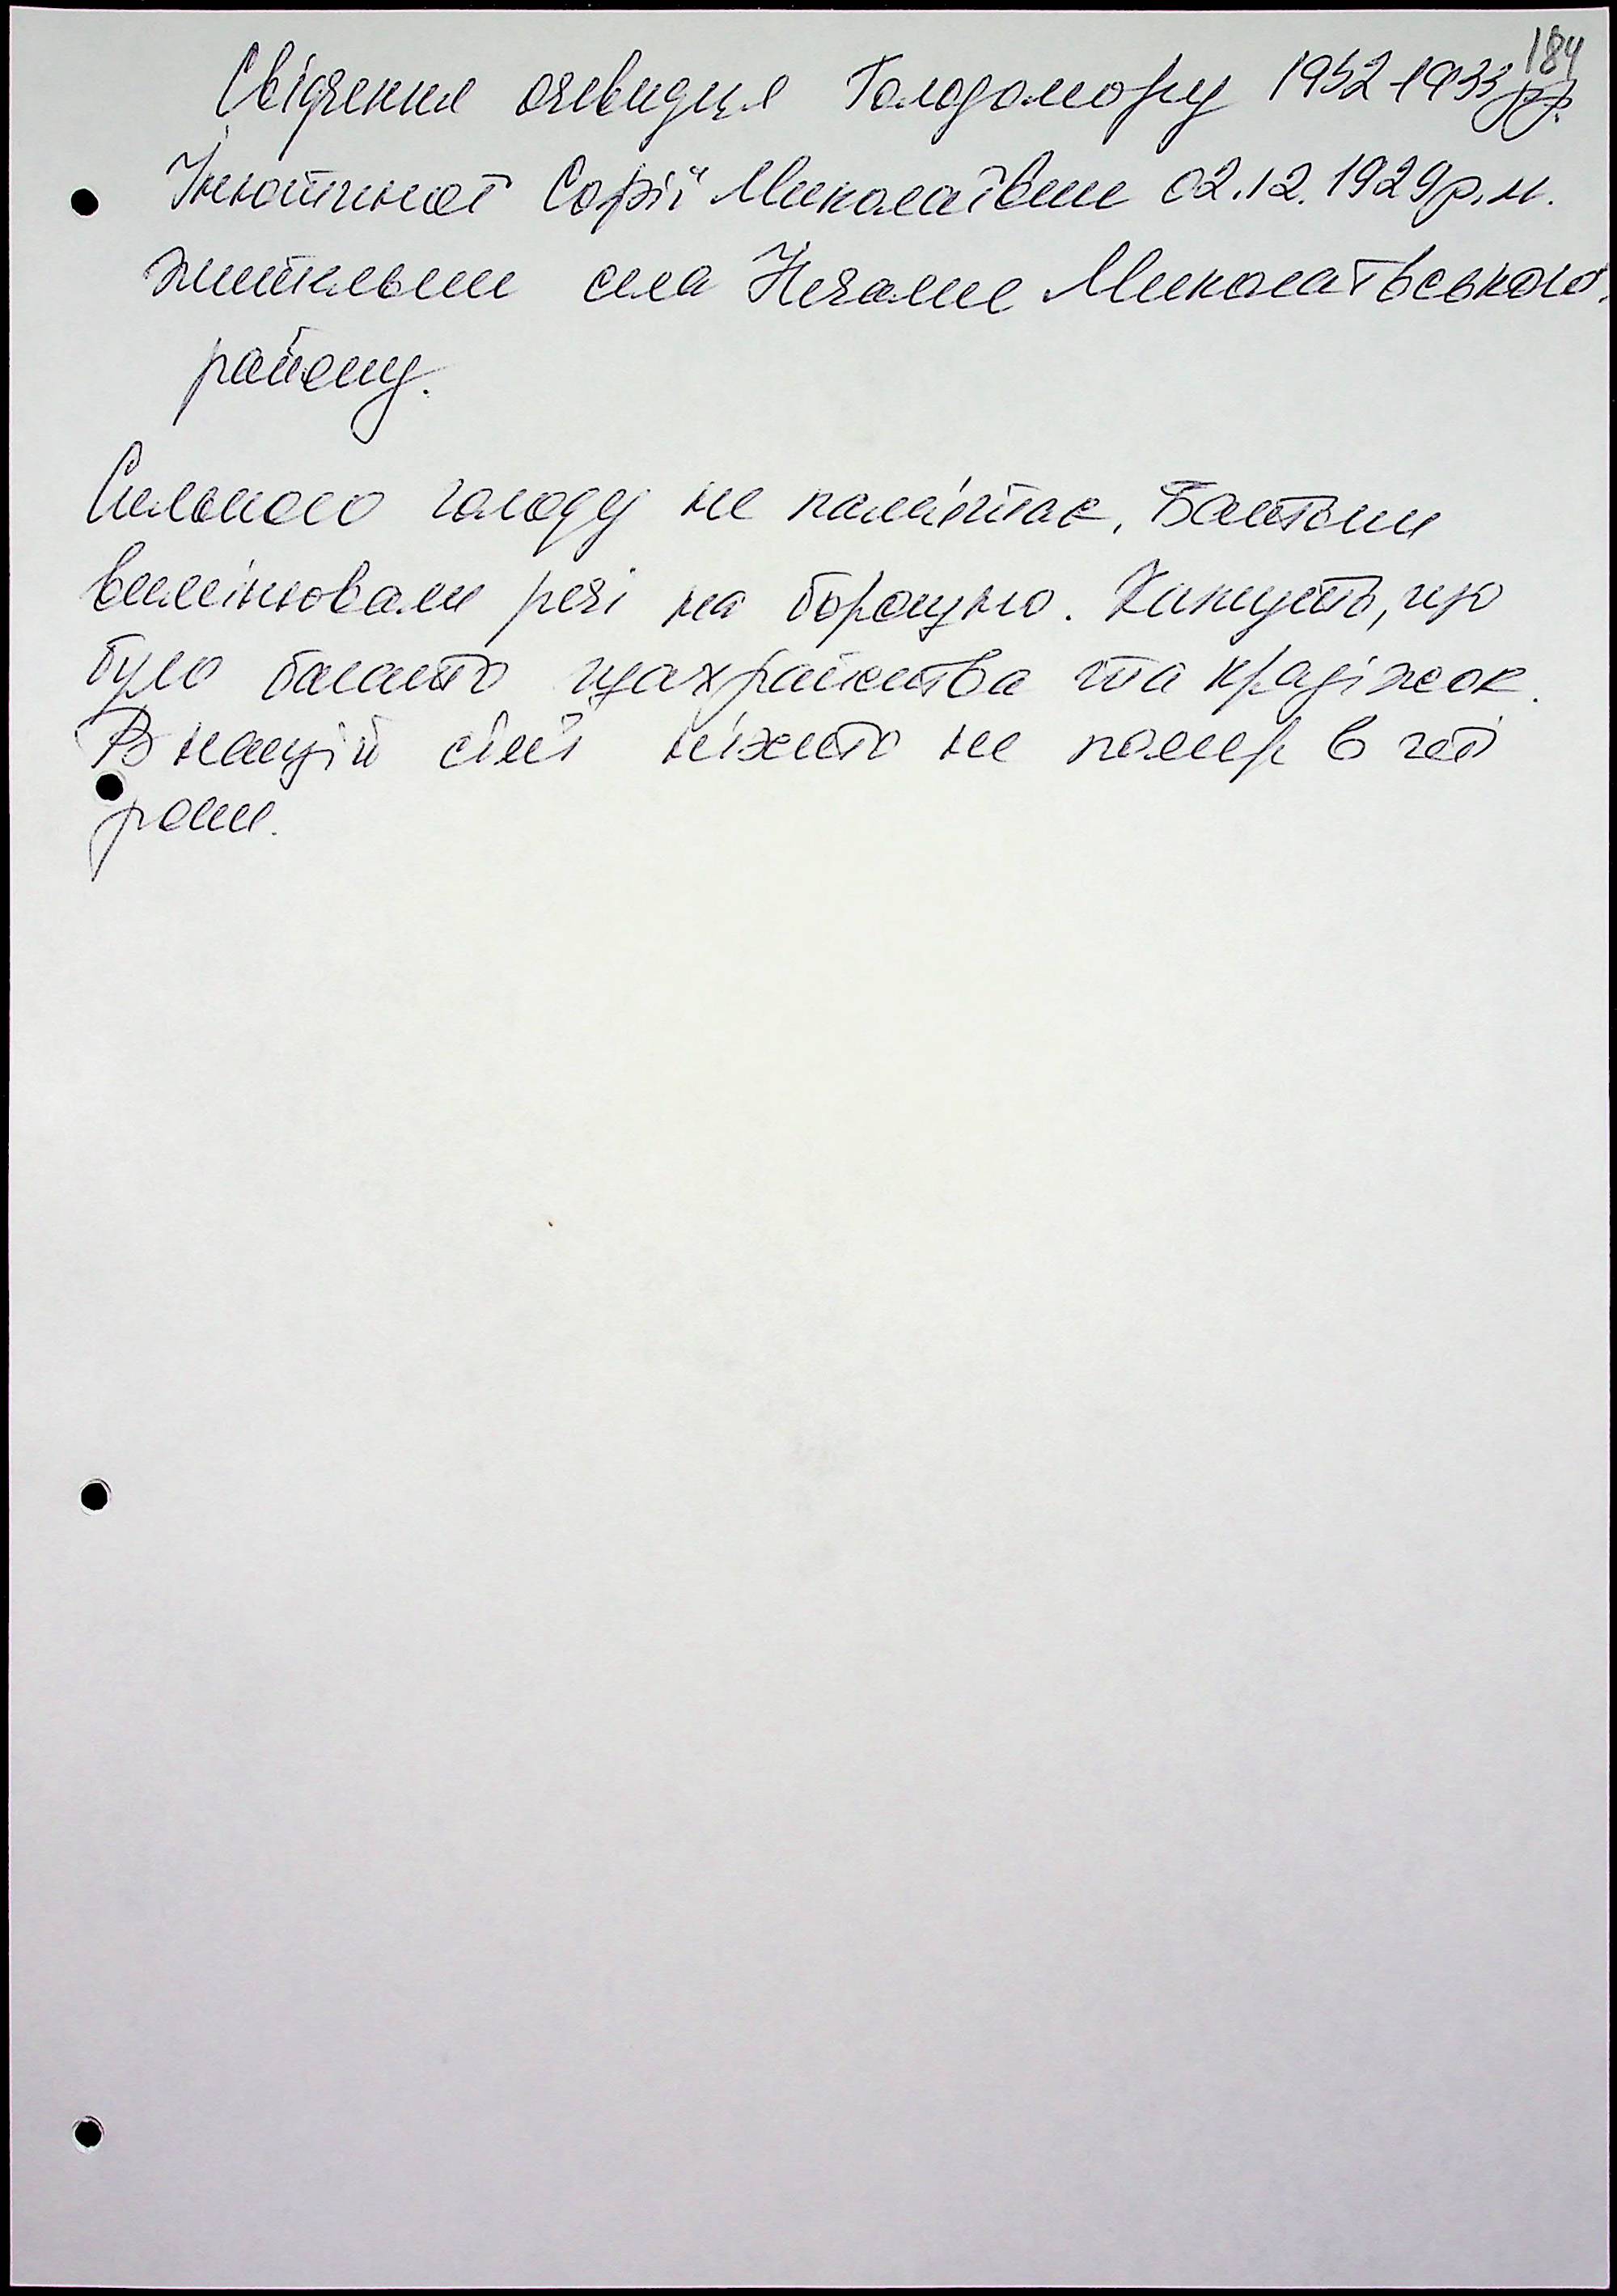 184
Свідчення очевидця Голодомору 1932-1933 рр.
Інютіної Софії Миколаївни 02.12.1929 р.н.
жительки села Нечаяне Миколаївського
району.
Сильного голоду не пам'ятає. Батьки
вимінювали речі на борошно. Кажуть, що
було багато шахрайства та крадіжок.
В нашій сім'ї ніхто не помер в ті
роки.